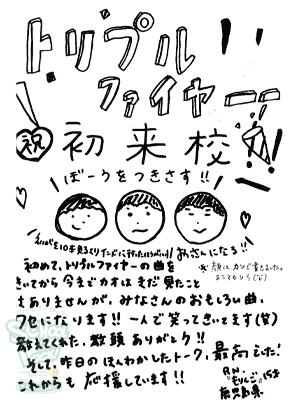 トリプル
ファイヤー
祝 初来校
ぼーくをつきさす!!
おさんになる!!
※顔はカンで書きました。
スミマセンう(笑)
初めて、トリプルファイヤーの曲を
きいてから今までカオはまだ見たこと
もありませんが、みなさんのおもしろい曲、
クセになります!! 一人で笑ってきいてます(笑)
教えてくれた、教頭 ありがとク!!
そして、昨日のほんわかしたトーク、最高でした!
これからも 応援しています!!
R.N.
もりんご。15才
鹿児島県